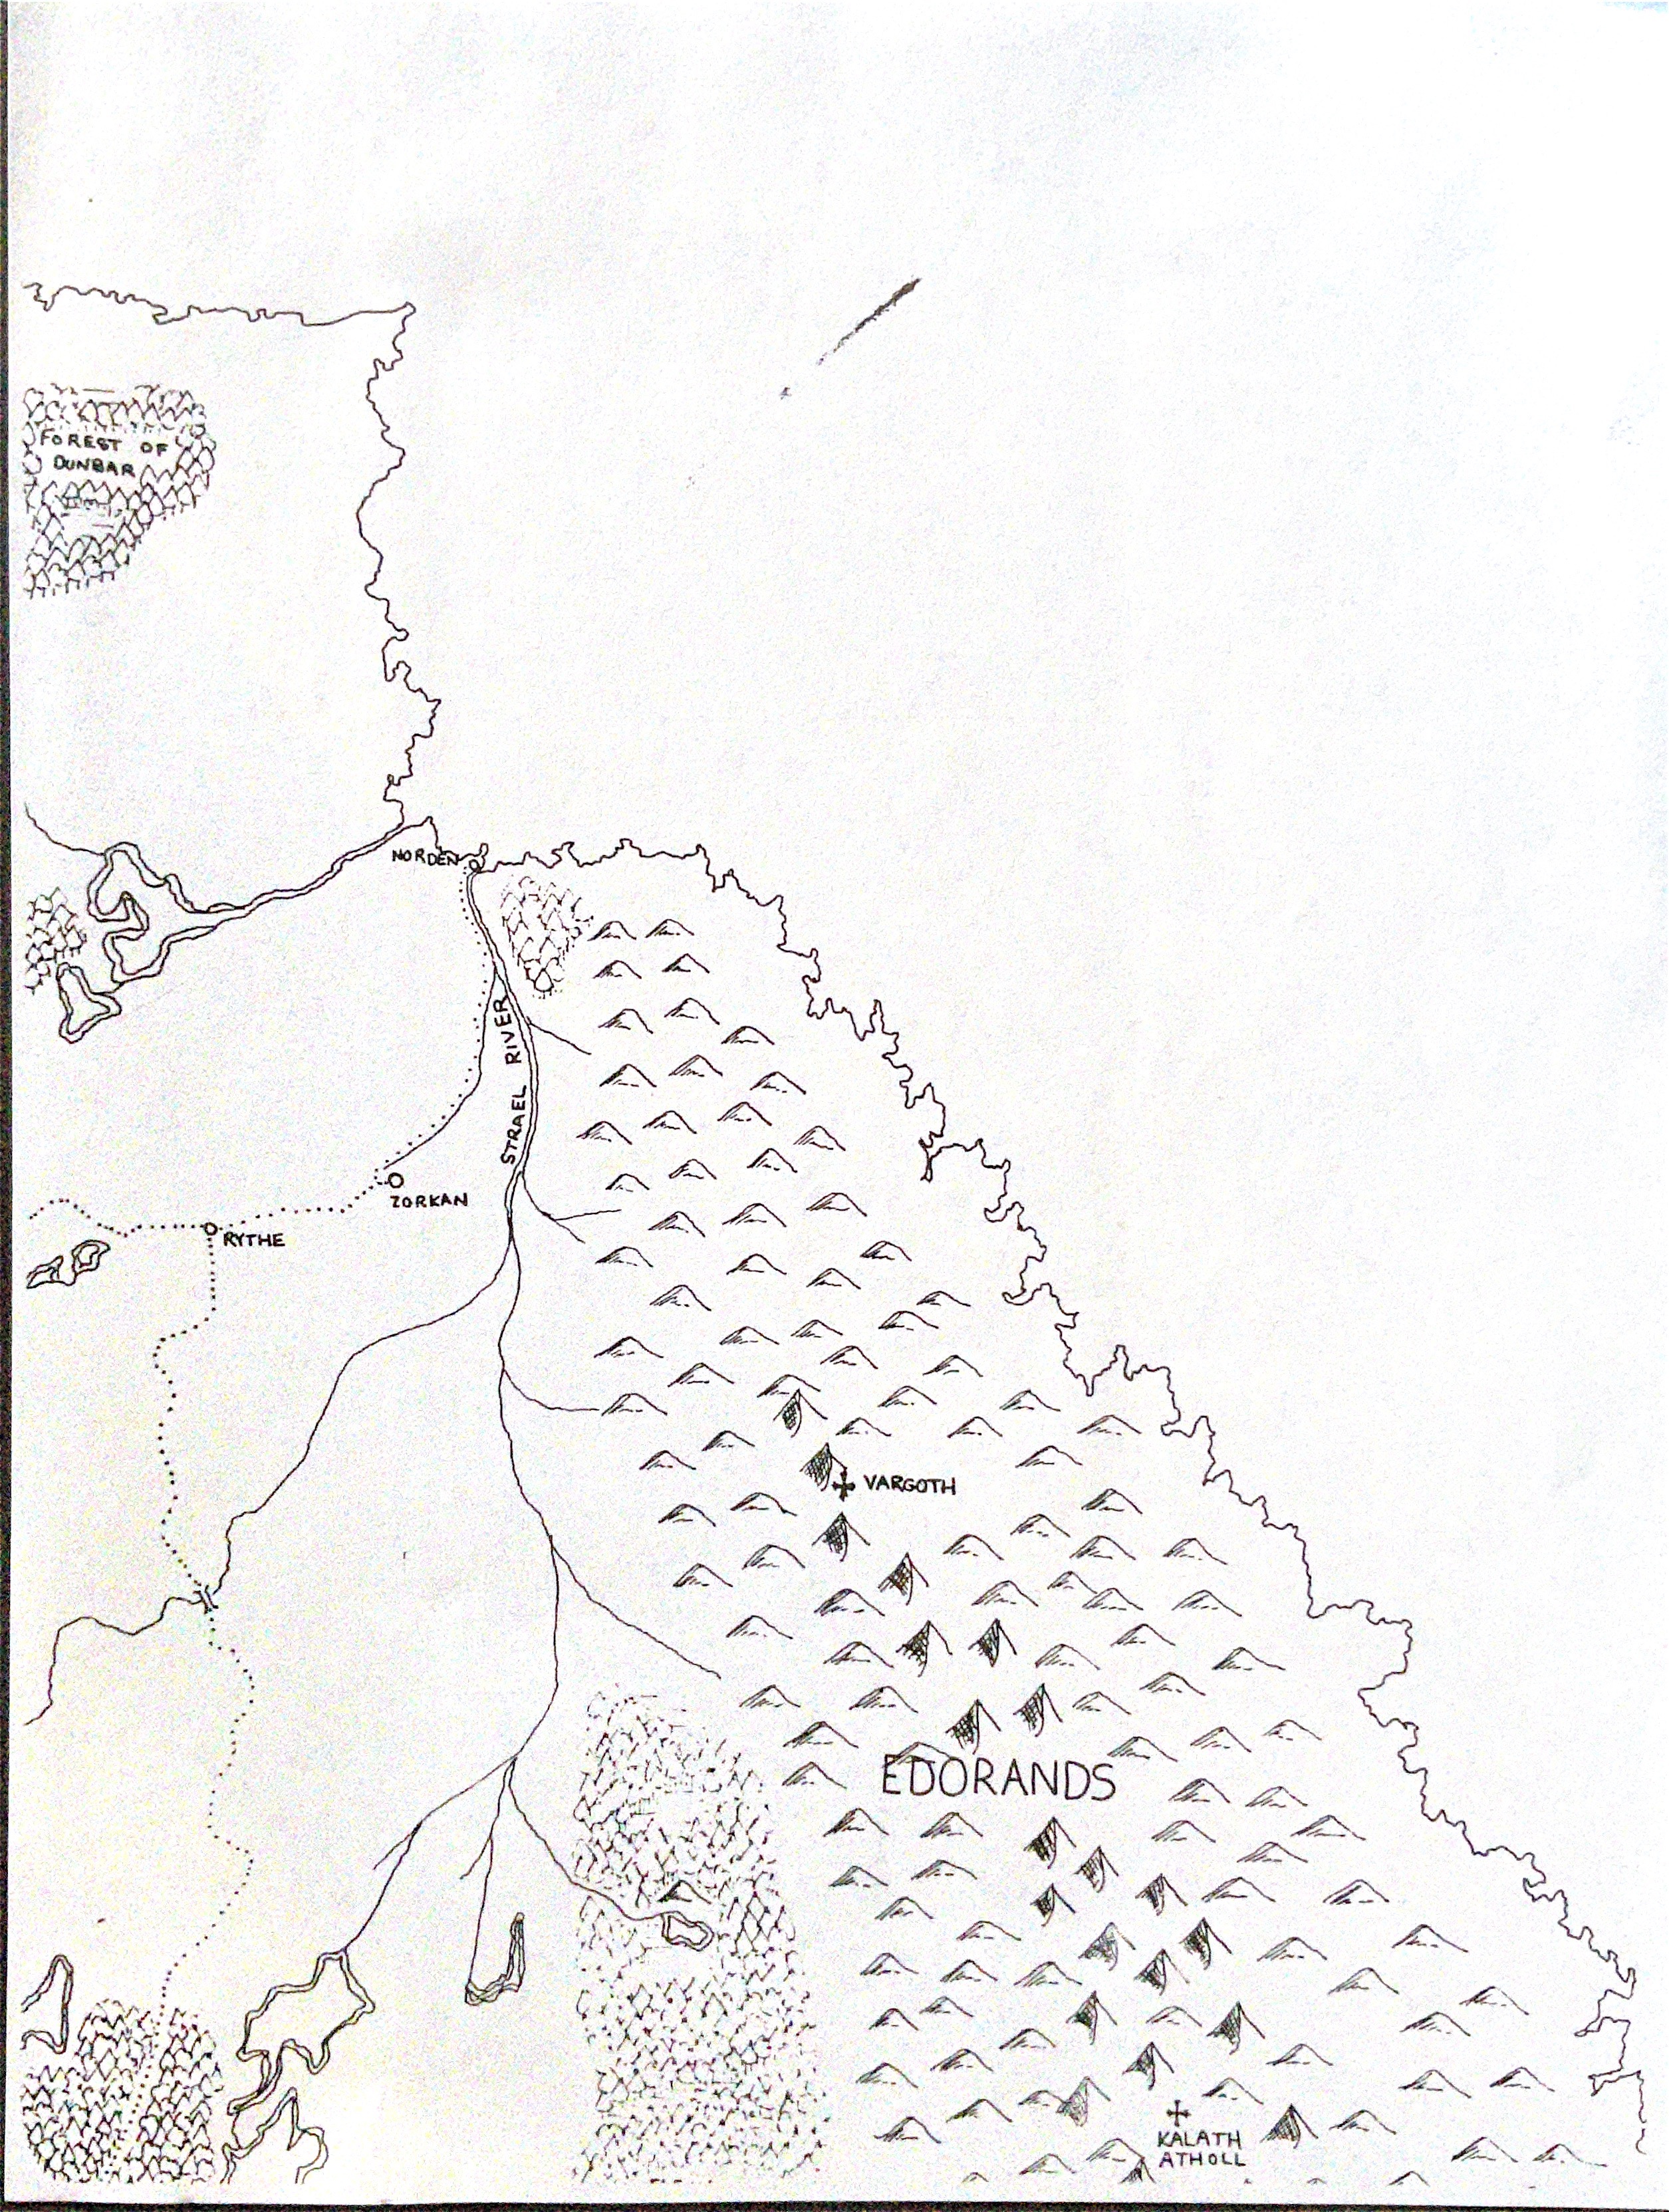 FOREST OF
DUNBAR
NORDEN
STRAEL RIVER
ZORKAN
RYTHE
VARGOTH
EDORANDS
KALATH
ATHOLL